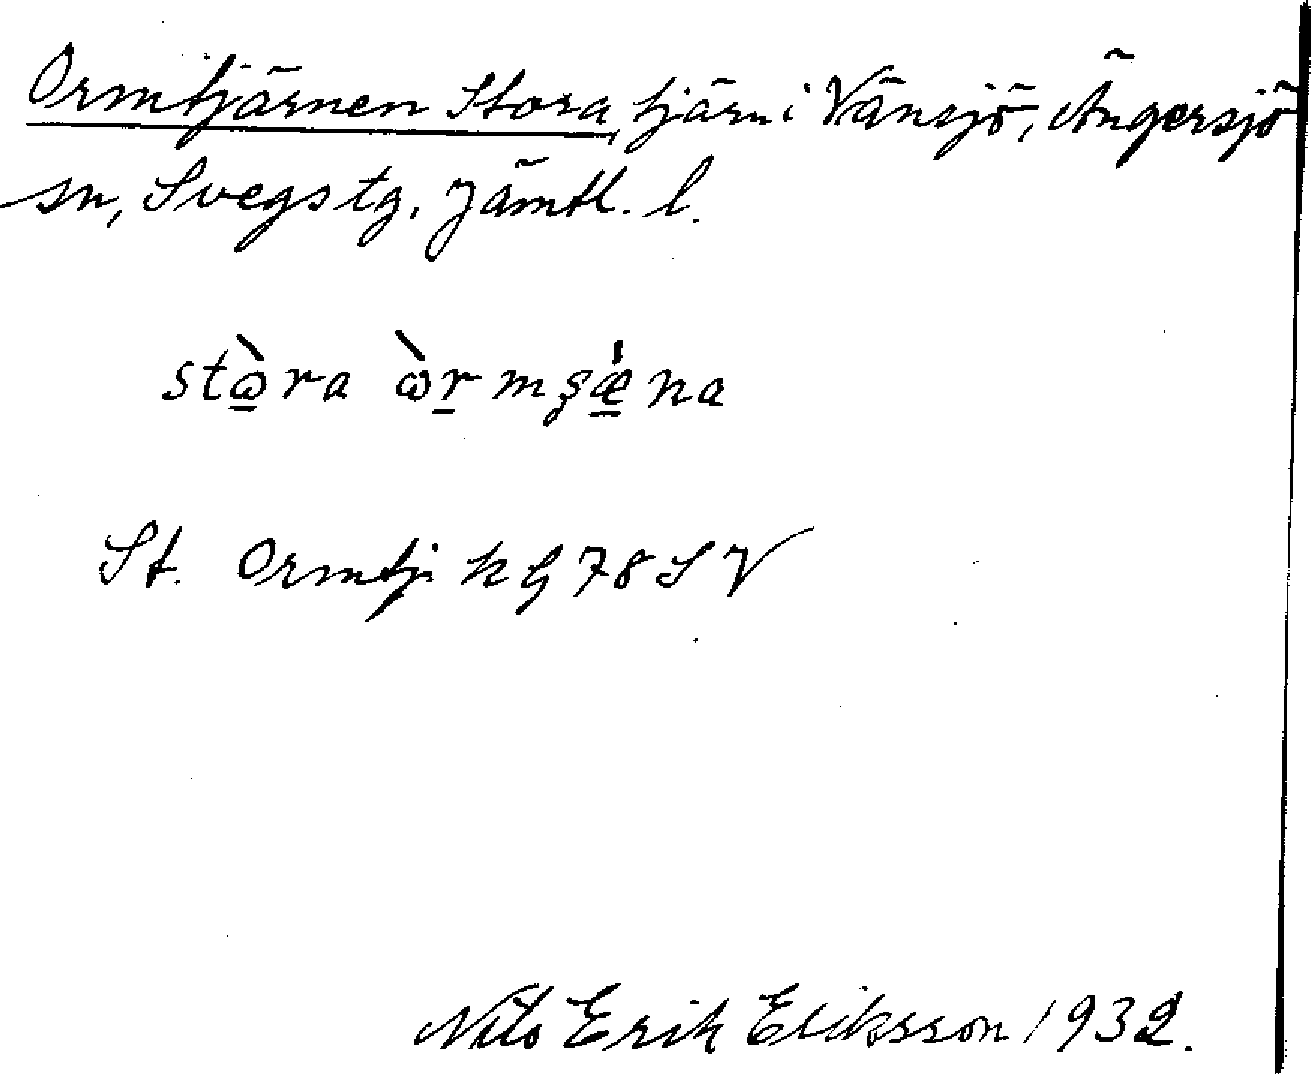 Ormtjärnen Stora, tjärn i Vänsjö, Ängersjö
sn, Svegs tg. Jämtl. l.
stὼ̲ra ὼr̲mʂǽ̲na
St. Ormtj k G 78 S V
Nils Erik Eliksson 1932.